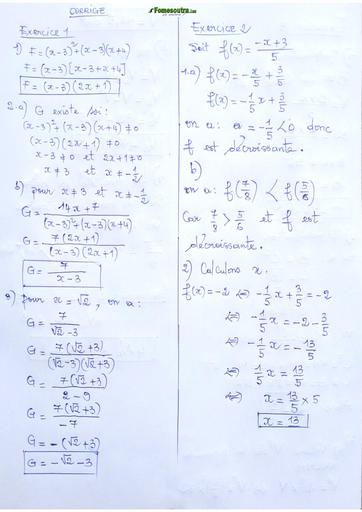 CORRIGE
Fomesoutra.com
Exercice 1
1) F = (x-3)² + (x-3)(x+4)
F = (x-3)[x-3+x+4]
F = (x-3)(2x+1)
2-a) G existe ssi:
(x-3)² + (x-3)(x+4) ≠ 0
(x-3)(2x+1) ≠ 0
x-3 ≠ 0 et 2x+1 ≠ 0
x ≠ 3 et x ≠ -1/2
b) pour x ≠ 3 et x ≠ -1/2
G = (14x+7)/((x-3)²+(x-3)(x+4))
G = 7(2x+1)/((x-3)(2x+1))
G = 7/(x-3)
3) pour x = √2, on a:
G = 7/(√2-3)
G = 7(√2+3)/((√2-3)(√2+3))
G = 7(√2+3)/(2-9)
G = 7(√2+3)/(-7)
G = -(√2+3)
G = -√2-3
Exercice 2
Soit f(x) = (-x+3)/5
1.a) f(x) = -x/5 + 3/5
f(x) = -1/5 x + 3/5
on a: a = -1/5 < 0 donc
f est décroissante.
b)
on a: f(7/8) < f(5/6)
Car 7/8 > 5/6 et f est
décroissante.
2) Calculons x.
f(x) = -2 ⇔ -1/5 x + 3/5 = -2
⇔ -1/5 x = -2 - 3/5
⇔ -1/5 x = -13/5
⇔ 1/5 x = 13/5
⇔ x = 13/5 × 5
x = 13